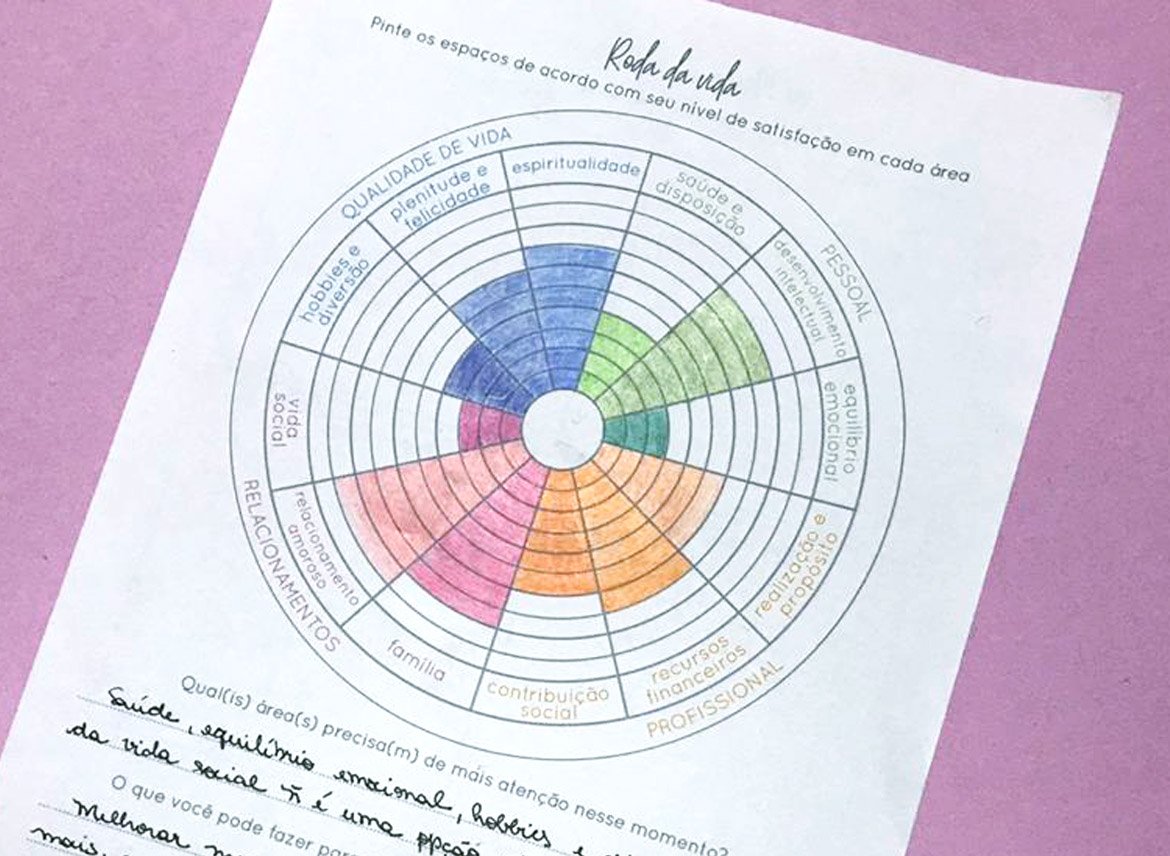 Roda da vida
Pinte os espaços de acordo com seu nível de satisfação em cada área
QUALIDADE DE VIDA
hobbies e
diversão
plenitude e
felicidade
espiritualidade
PESSOAL
saúde e
disposição
desenvolvimento
intelectual
equilíbrio
emocional
PROFISSIONAL
realização e
propósito
recursos
financeiros
contribuição
social
RELACIONAMENTOS
família
relacionamento
amoroso
vida
social
Qual(is) área(s) precisa(m) de mais atenção nesse momento?
Saúde, equilíbrio emocional, hobbies e
da vida social ñ é uma
O que você pode fazer para
Melhorar
mais,